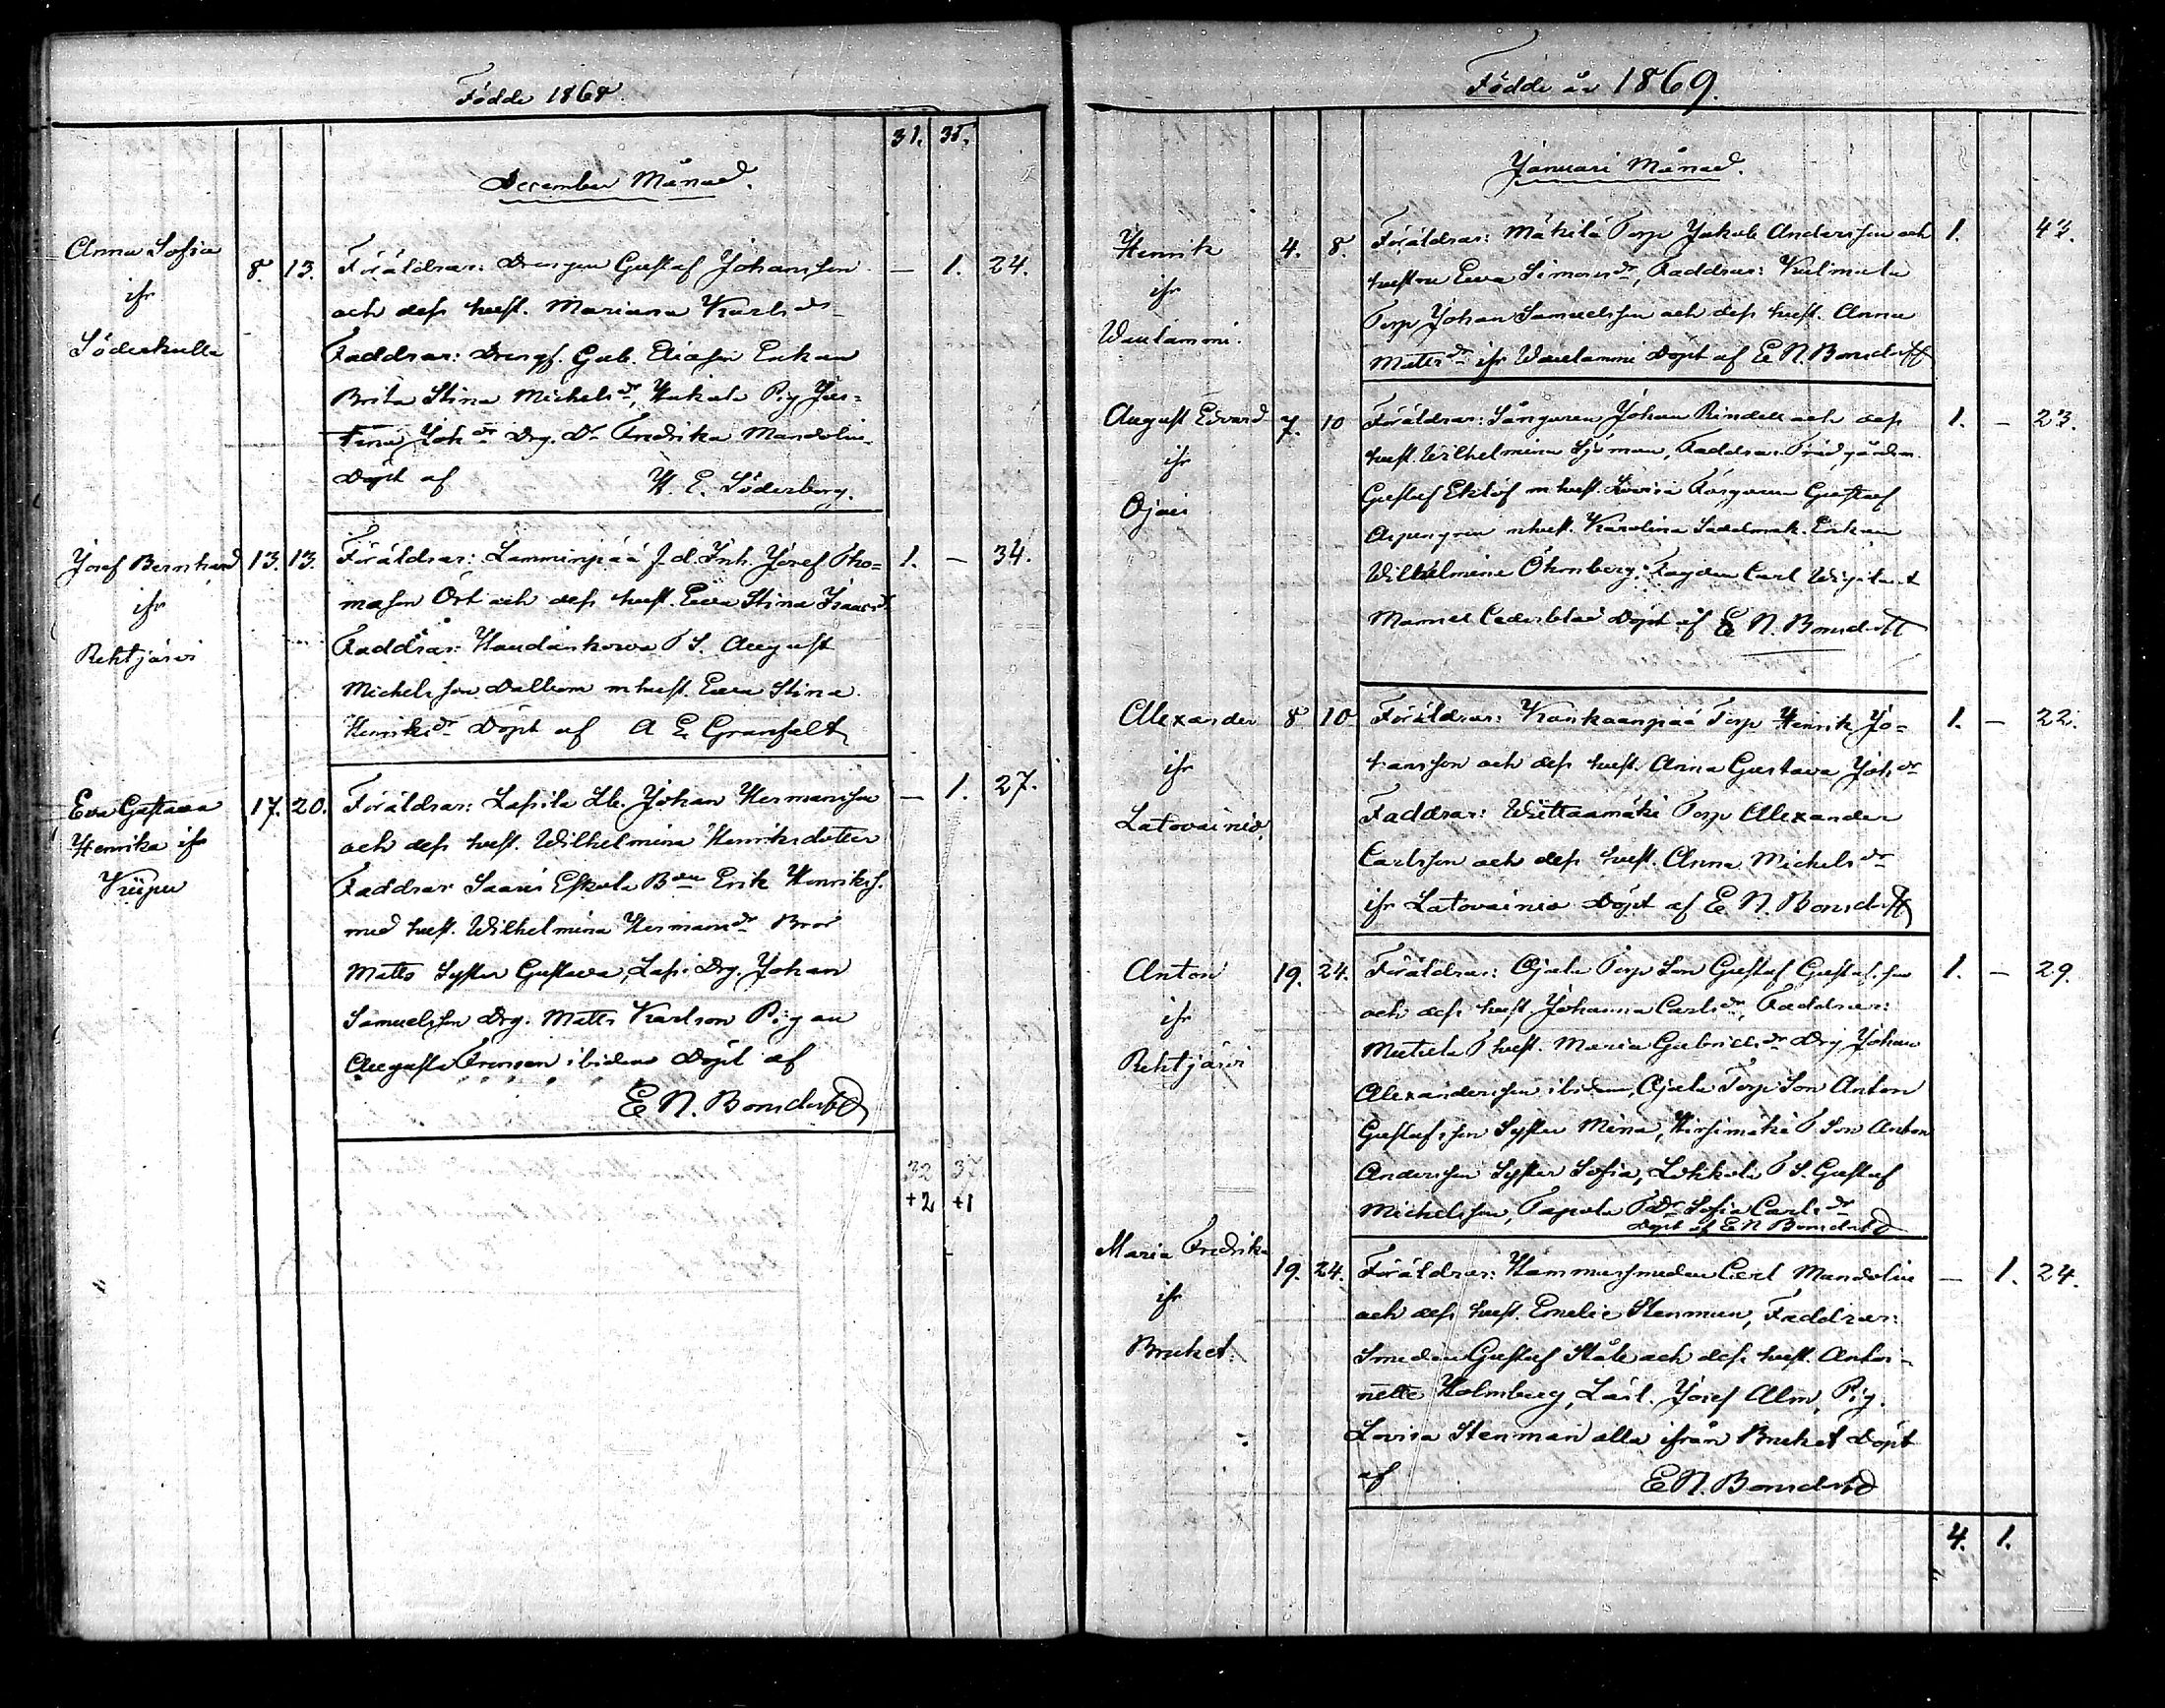 Födde 1868.
31. 35.
December Månad.
Anna Sofia
ifr
Söderkulla
8. 13. Föräldrar: Drengen Gustaf Johansson — 1. 24.
och dess hust. Mariana Karlsdr
Faddrar: Drengs. Gab. Eliasson Enkan
Brita Stina Michelsdr, Hakala Pig Jus=
tina Johdr Drg. Dr Fredrika Mandolin
Döpt af H. E. Söderberg.
Josef Bernhard
ifr
Rehtjärvi
13. 13. Föräldrar: Lamminpää J. d. Inh. Josef Tho= 1. — 34.
masson Ört och dess hust. Eva Stina Isaacsdr
Faddrar: T S. August
Michelsson Dalbom m hust. Eva Stina
Henriksdr Döpt af A E Granfelt
Eva Gustava
Henrika ifr
Kuipu
17. 20. Föräldrar: Lassila Lb. Johan Hermansson — 1. 27.
och dess hust. Wilhelmina Henriksdotter
Faddrar Saari Eskola Bden Erik Henrikss.
med hust. Wilhelmina Hermansdr Bror
Matts Syster Gustava, Lassi Drg. Johan
Samuelsson Drg. Matts Karlson Pigan
Augusta Fransen ibidem Döpt af
E N. Bonsdorff
32 37
+2 +1
Födde år 1869.
Januari Månad.
Henrik
ifr
Waulammi.
4. 8. Föräldrar: Mäkilä Torp Jakob Andersson och 1. 43.
hustru Eva Simonsdr, Faddrar: Kulmala
Torp Johan Samuelsson och dess hust. Anna
Mattsdr ifr Waulammi Döpt af E N. Bonsdorff
August Edvard
ifr
Ojois
7. 10 Föräldrar: Sångaren Johan Rindell och dess 1. — 23.
hust. Wilhelmina Sjöman, Faddrar Trädgårdsm.
Gustaf Eklöf m hust. Lovisa Färgaren Gustaf
Aspengren m hust. Karolina Sadelmak. Enkan
Wilhelmina Öhrnberg, Fogden Carl
Mamsel Cederblad Döpt af E N. Bonsdorff
Alexander
ifr
Latovainio.
8 10 Föräldrar: Kankaanpää Torp Henrik Jo= 1. — 22.
hansson och dess hust. Anna Gustava Johsdr
Faddrar: Wiittaamäki Torp Alexander
Carlsson och dess hust. Anna Michelsdr
ifr Latovainio Döpt af E N. Bonsdorff
Anton
ifr
Rehtjärvi
19. 24. Föräldrar: Ojala Torp Son Gustaf Gustafsson 1. — 29.
och dess hust Johanna Carlsdr, Faddrar:
Mutula T hust. Maria Gabrielsdr Drg Johan
Alexandersson ibidem, Ojala Torp Son Anton
Gustafsson Syster Mina, Hirsimäki T Son Anton
Andersson Syster Sofia, Lökkälä T S. Gustaf
Michelsson, Tapola T Dr Sofia Carlsdr
Döpt af E N Bonsdorff
Maria Fredrika
ifr
Bruket.
19. 24. Föräldrar: Hammarsmeden Carl Mandolin — 1. 24.
och dess hust. Emelie Stenman, Faddrar:
Smeden Gustaf Ståle och dess hust. Antoi-
nette Holmberg, Lärl. Josef Alm, Pig.
Lovisa Stenman alla ifrån Bruket Döpt
af E N. Bonsdorff
4. 1.